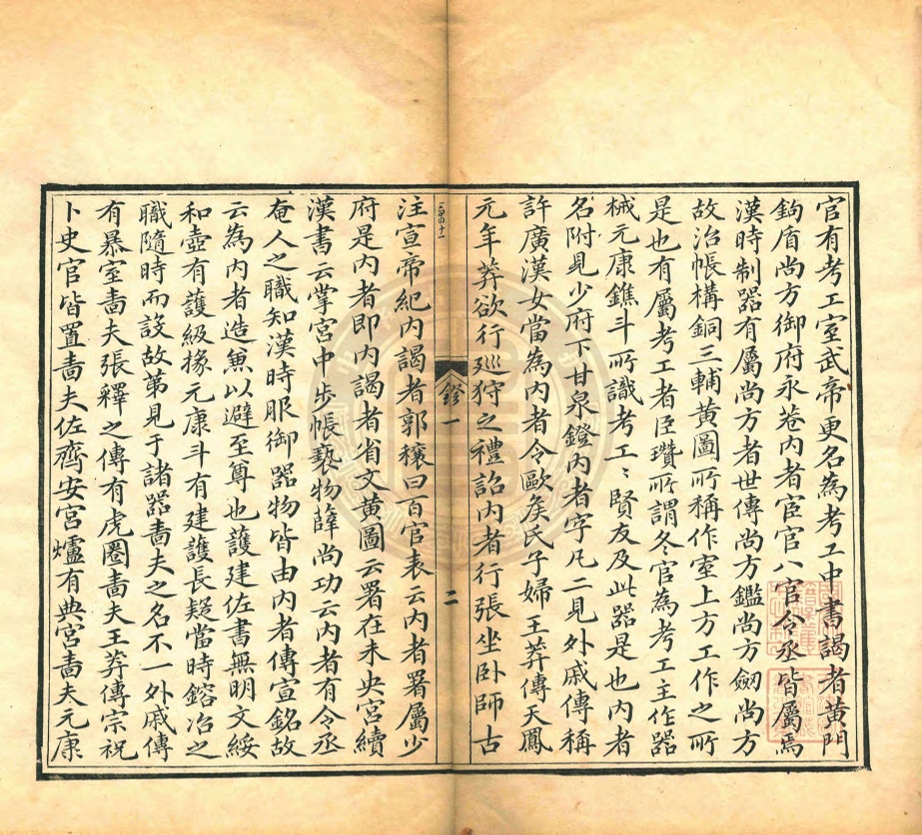 官有考工室武帝更名為考工中書謁者黃門
鉤盾尚方御府永巷內者宦官八官令丞皆屬焉
漢時制器有屬尚方者世傳尚方鑑尚方劒尚方
故治帳構銅三輔黃圖所稱作室上方工作之所
是也有屬考工者臣瓚所謂冬官為考工主作器
械元康鐎斗所識考工﹦賢友及此器是也內者
名附見少府下甘泉鐙內者字凡二見外戚傳稱
許廣漢女當為內者令歐矦氏子婦王莽傳天鳳
元年莽欲行巡狩之禮詔內者行張坐臥師古
鐙一
二
注宣帝紀內謁者郭穰曰百官表云內者署屬少
府是內者即內謁者省文黃圖云署在未央宮續
漢書云掌宮中步帳褻物薛尚功云內者有令丞
奄人之職知漢時服御器物皆由內者傳宣銘故
云為內者造䰟以避至尊也護建佐書無明文綏
和壺有護級掾元康斗有建護長疑當時鎔冶之
職隨時而設故第見于諸器嗇夫之名不一外戚傳
有暴室嗇夫張釋之傳有虎圈嗇夫王莽傳宗祝
卜史官皆置嗇夫佐齊安宮爐有典宮嗇夫元康